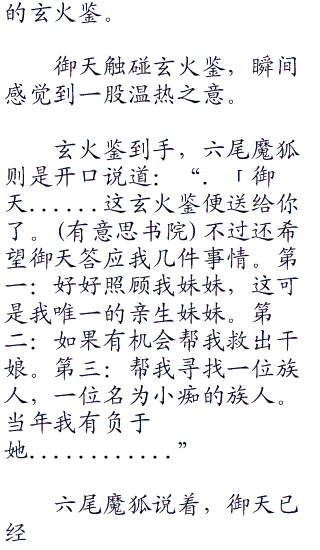 的玄火鉴。
御天触碰玄火鉴，瞬间
感觉到一股温热之意。
玄火鉴到手，六尾魔狐
则是开口说道：“．「御
天．．．．．．这玄火鉴便送给你
了。(有意思书院)不过还希
望御天答应我几件事情。第
一：好好照顾我妹妹，这可
是我唯一的亲生妹妹。第
二：如果有机会帮我救出干
娘。第三：帮我寻找一位族
人，一位名为小痴的族人。
当年我有负于
她．．．．．．．．．．．．”
六尾魔狐说着，御天已
经